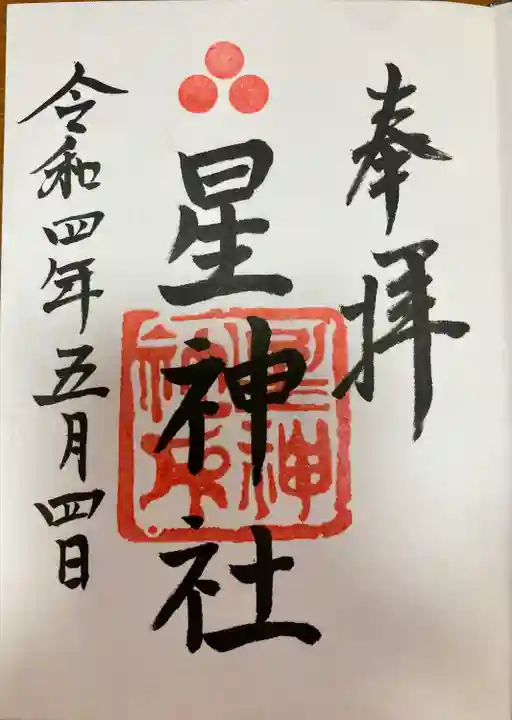 奉拝
星神社
令和四年五月四日